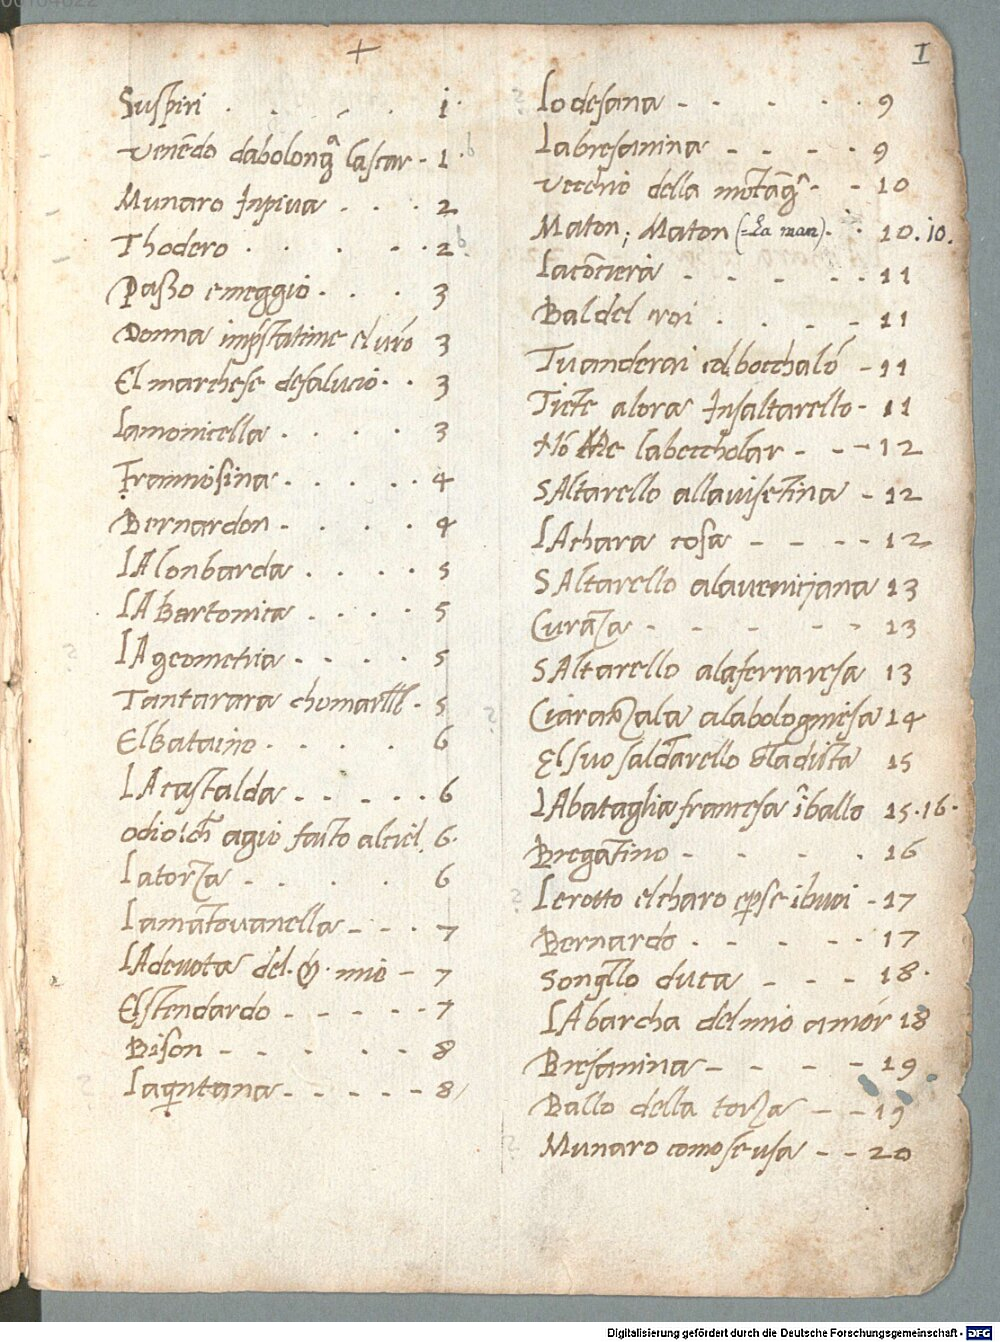 +
I
Suspiri . . . . . 1.
venēdo dabolongª lascar - 1. b
Munaro Inpiva . . . 2
Thodero . . . . . 2. b
Passo emeggio . . . 3
Donna impstatime el vrō 3
El marchese desalucio . . 3
Lamonicella . . . . 3
Framosina . . . . . 4
Bernardon . . . . 4
LAlonbarda . . . . 5
LAbertonica . . . . 5
LAgeometria . . . . 5
Tantarara chomar - 5
Elbataino . . . . 6
LAcastalda . . . . . 6
odioich agio faito altiel 6.
Latorza . . . . 6
Lamātovanella - . . 7
LAdevota del . mio - 7
Elstendardo - - - - - 7
Bison - - . . - 8
Laqntana - - - - - 8
Lodesana - - . . . 9
Labresanina - - - . 9
vecchio della mōtāgª . - 10
Maton; Maton (=La man) . . 10.10.
Lacōcieria - - - - . 11
Baldel roi . . - - 11
Tuanderai col bocchalō - 11
Tiente alora Insaltarello - 11
Nō labecholar - - - 12
SAltarello allavisentina - 12
LAchara cosa - - - - 12
SAltarello alavenicijana 13
Curanza - - - - - 13
SAltarello alaferraresa 13
Ciaranzala alabolognesa 14
El suo saldarello 15
LAbataglia francesa ī ballo 15.16.
Bregantino - - . . 16
Lerotto elcharo epse ibuoi - 17
Bernardo . . - - . 17
Songllo duca - - - 18.
LAbarcha delmio amor 18
Bresanina - - - - 19
Ballo della torza - - 19
Munaro como se usa - - 20
Digitalisierung gefördert durch die Deutsche Forschungsgemeinschaft - DFG